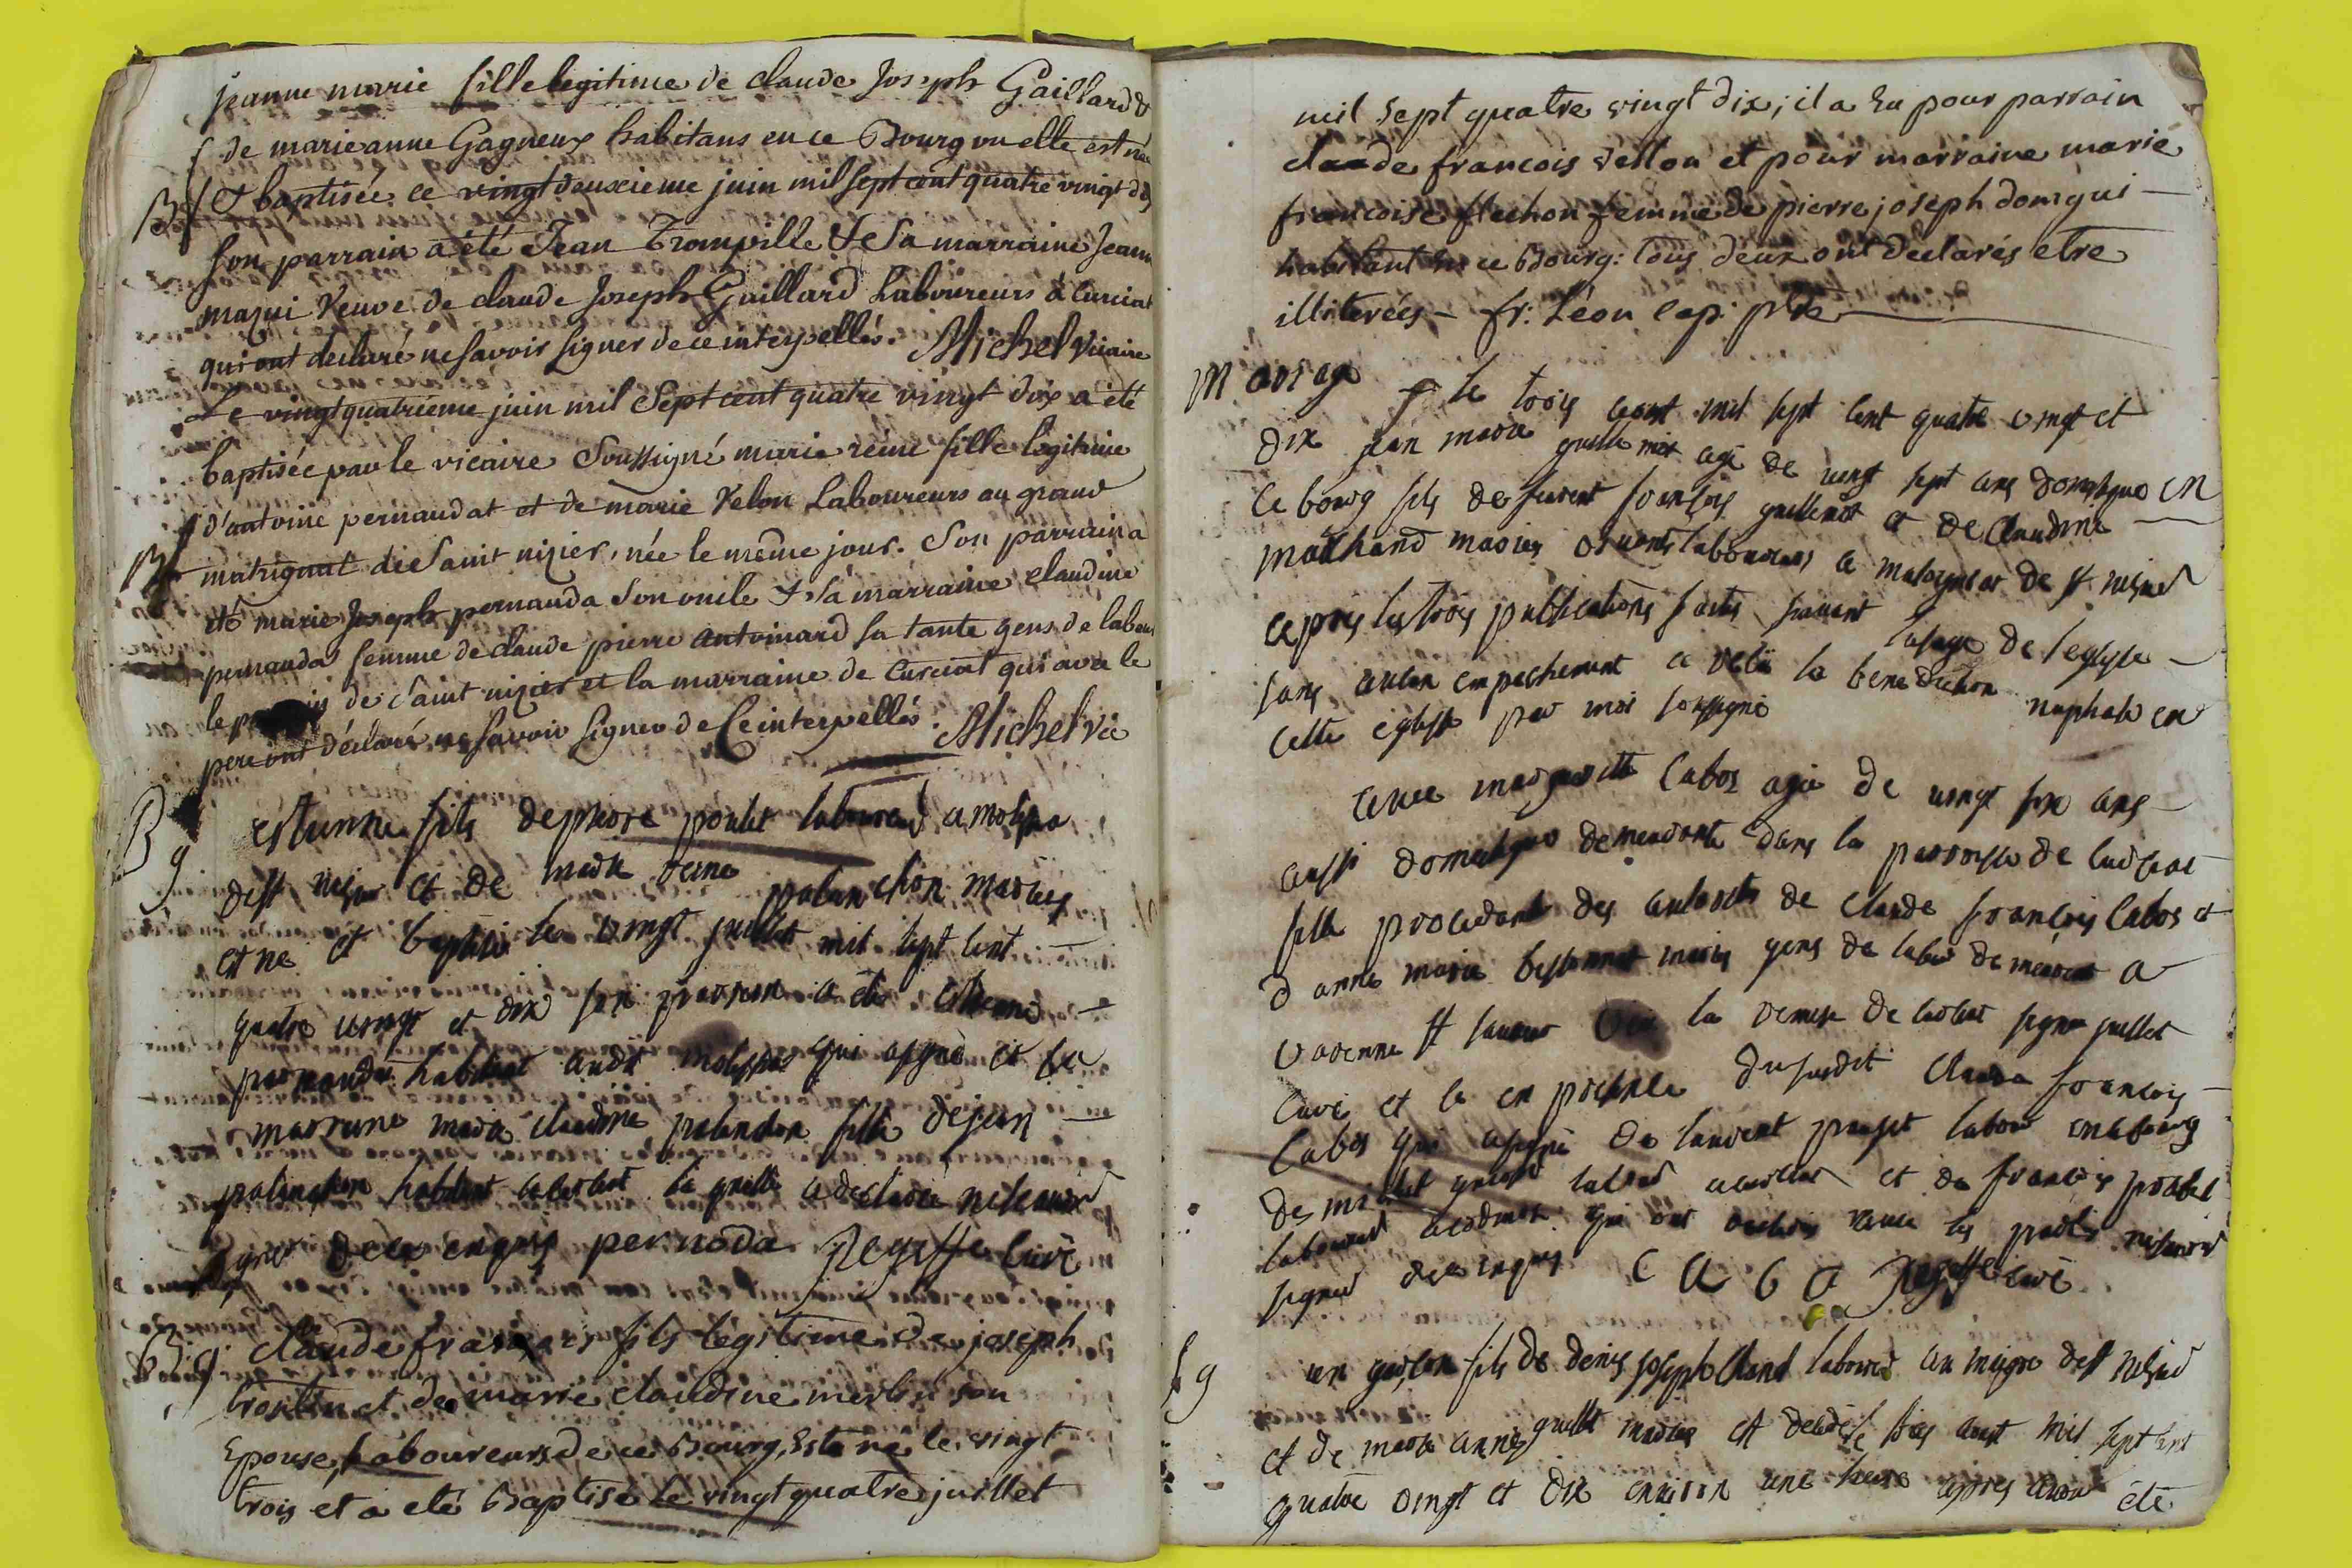 jeanne marie fille legitime de claude Joseph Gaillard &
f de marieanne Gagneux habitans en ce Bourg ou elle est née
B f & baptisée ce vingt deuxieme juin mil sept cent quatre vingt dix
son parrain a été Jean Tromville & sa marraine Jeanne
mazui Veuve de claude Joseph Gaillard Laboureurs à curciat
qui ont declaré ne savoir signer de ce interpellés. Michel vicaire
Le vingt quatrieme juin mil Sept cent quatre vingt dix a été
baptisée par le vicaire Soussigné marie reine fille legitime
f d'antoine pernaudat et de marie Velon Laboureurs au grand
B matignat de Saint nizier, née le même jour. Son parrain a
été marie Joseph pernauda son oncle & sa marraine claudine
pernauda femme de claude pierre antoinard sa tante gens de labeur
le de Saint nizier et la marraine de Curciat qui avec le
pere ont déclaré ne Savoir Signer de Ce interpellés. Michel vic
B g estienne fils de pierre poulet laboureur a
de st nisier et de marie reine palanchon mariés
est ne et baptisé le vingt juillet mil sept cent
quatre vingt et dix son parrain a été estienne
pernauda habitant audit qui a signé et la
marraine marie claudine palanchon fille de jean
palanchon habitant a la quelle a declaré ne savoir
signer de ce enquis pernoda curé
B. g. claude francois fils légitime de joseph
trontin et de marie claudine merlin son
Epouse, Laboureurs de ce Bourg, Est né le vingt
trois et a eté Baptisé le vingt quatre juillet
mil sept quatre vingt dix; il a Eu pour parrain
claude francois vellon et pour marraine marie
francoise flechon femme de pierre joseph domgui
habitant En ce Bourg: tous deux ont déclarés etre
illiterées - fr: Léon cap: ptre
Mariage g le trois aout mil sept cent quatre vingt et
dix jean marie guillemot agé de vingt sept ans domestique en
ce bourg fils de francois guillemot et de claudine
marchand mariés laboureurs a de st nisier
apres les trois publications faites suivant lusage de leglise
sans aucun empechement a recu la benediction nuptiale en
cette eglise par moi soussigné
avec marguerite cabos agée de vingt six ans
aussi domestique demeurante dans la parroisse de
fille procedant des autorités de claude francois cabos et
d anne marie mariés gens de labeur demeurant a
varenne st sauveur la remise de signé juillet
curé et ce en presence du susdit claude francois
cabos qui a signé de laurent labour en ce bourg
de laboureur et de francois poulet
laboureur qui ont declaré avec les parties ne savoir
signer de ce enquis C a b o curé
s g un garçon fils de denis joseph laboureur au de st nisier
et de marie anne guillet mariés est decedé le aout mil sept cent
quatre vingt et dix environ une heure apres avoir été